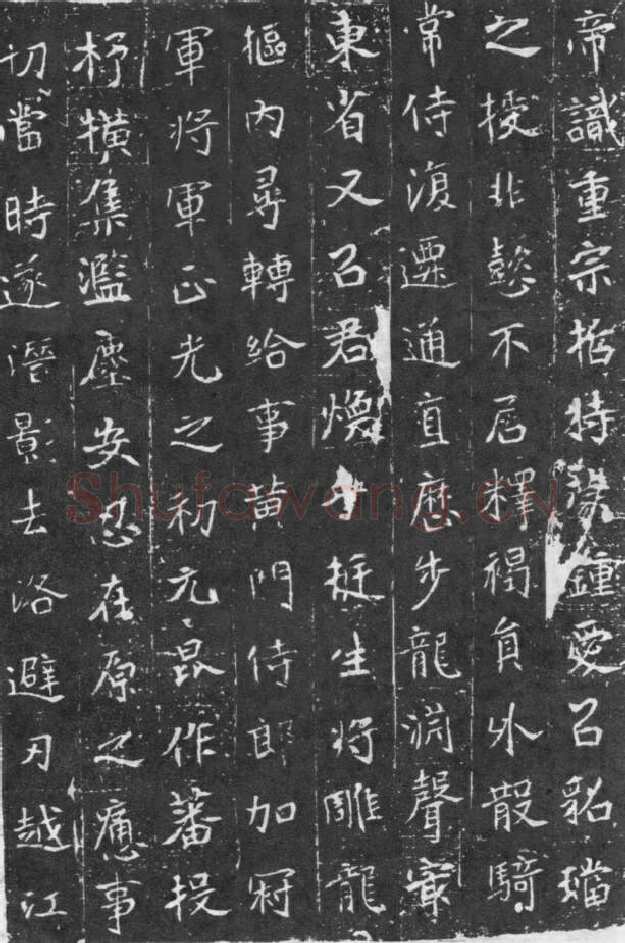 帝識重宗哲特深鍾愛以貂璫
之授非懿不居釋褐員外散騎
常侍復遷通直歷步龍淵聲實
東省又以君煥乎挺生將雕龍
樞內尋轉給事黃門侍郎加冠
軍將軍正光之初元昆作蕃投
杼橫集濫塵安忍在原之應事
切當時遂潛影去洛避刃越江
Shufawang.cn